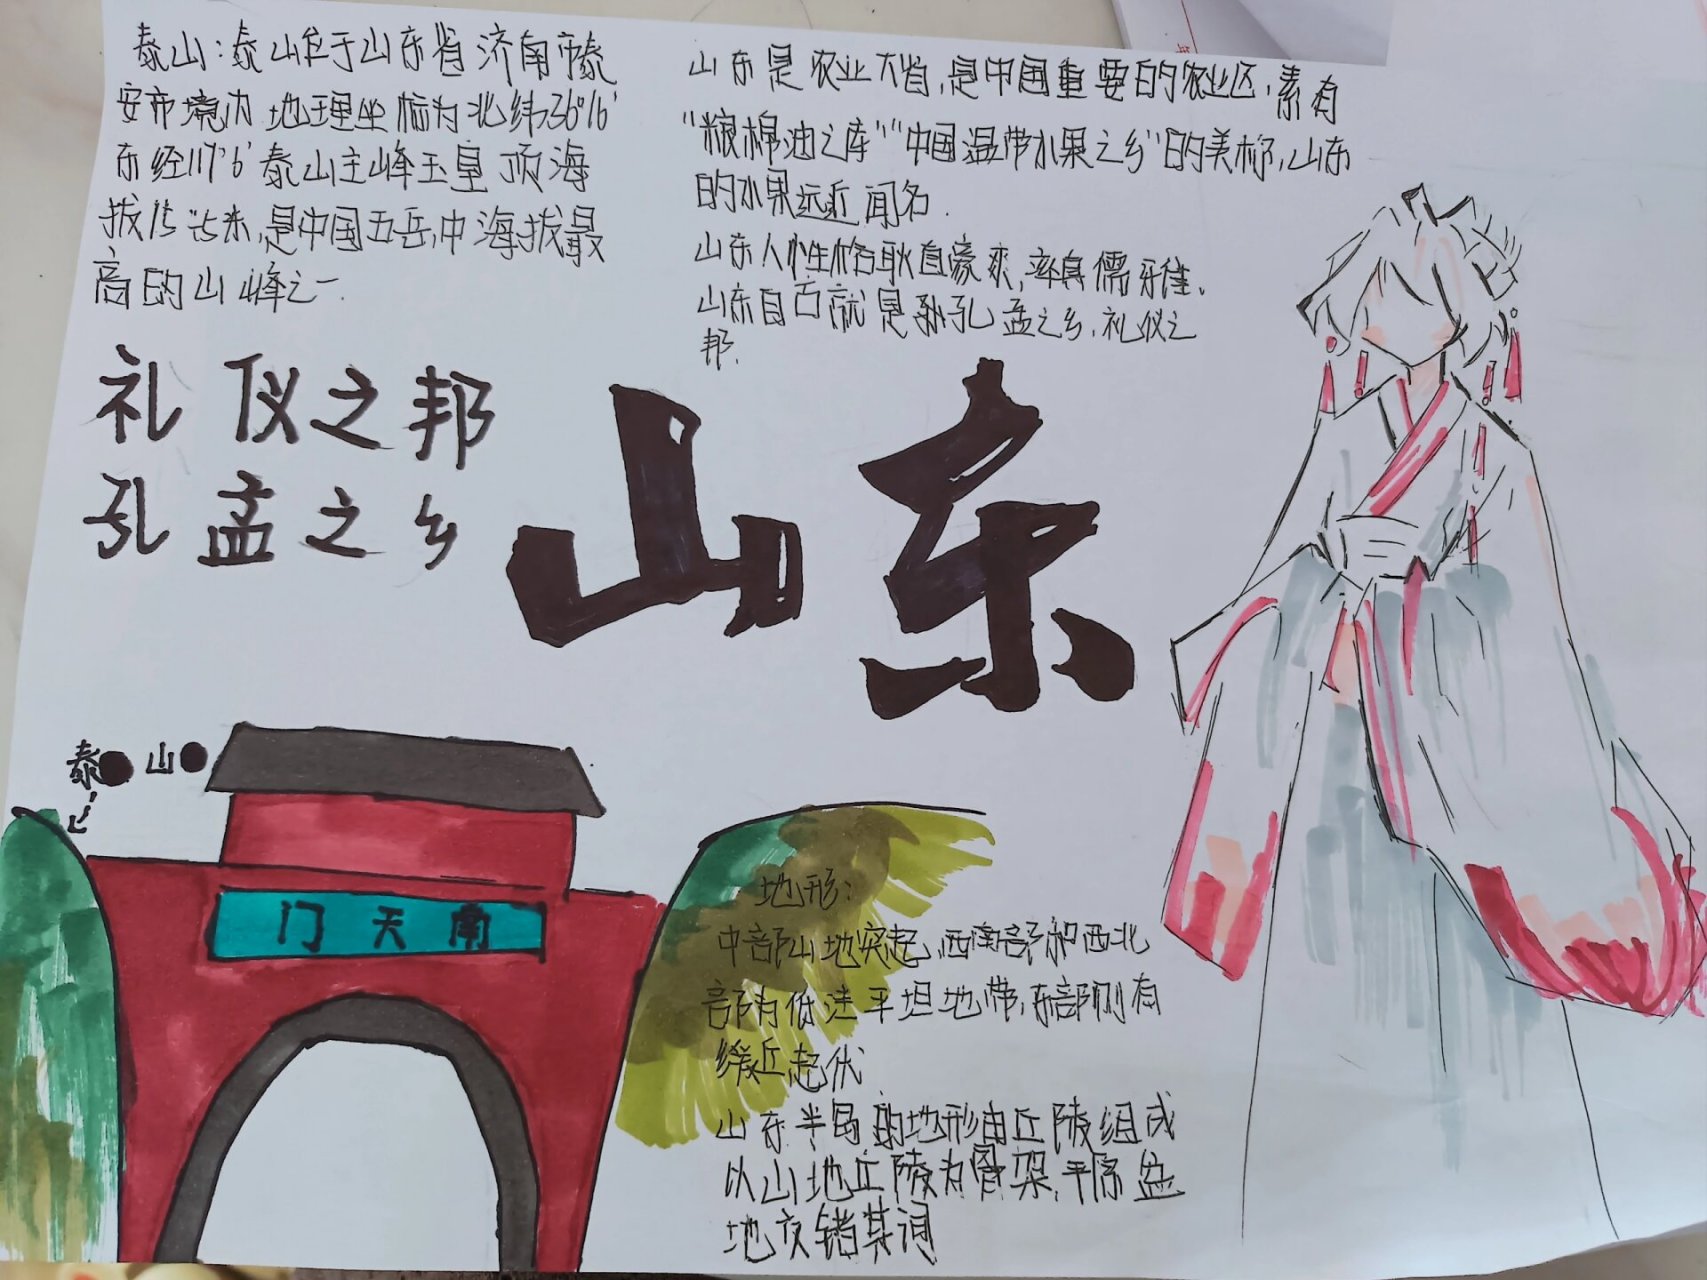 泰山:泰山位于山东省济南市泰
安市境内 地理坐标为北纬36°16′
东经117°6′泰山主峰玉皇顶海
拔15 米,是中国五岳,中海拔最
高的山峰之一.
山东是农业大省,是中国重要的农业区,素有
"粮棉油之库""中国温带水果之乡"的美称,山东
的水果远近闻名.
山东人性格耿直豪爽,率真儒雅、
山东自古就是 孔孟之乡,礼仪之
邦.
礼仪之邦
孔孟之乡
山东
泰山
门天南
地形:
中部山地突起,西南部和西北
部 低洼平坦地带,东部则有
缓丘起伏
山东半岛的地形由丘陵组成
以山地丘陵为骨架,平原盆
地交错其间